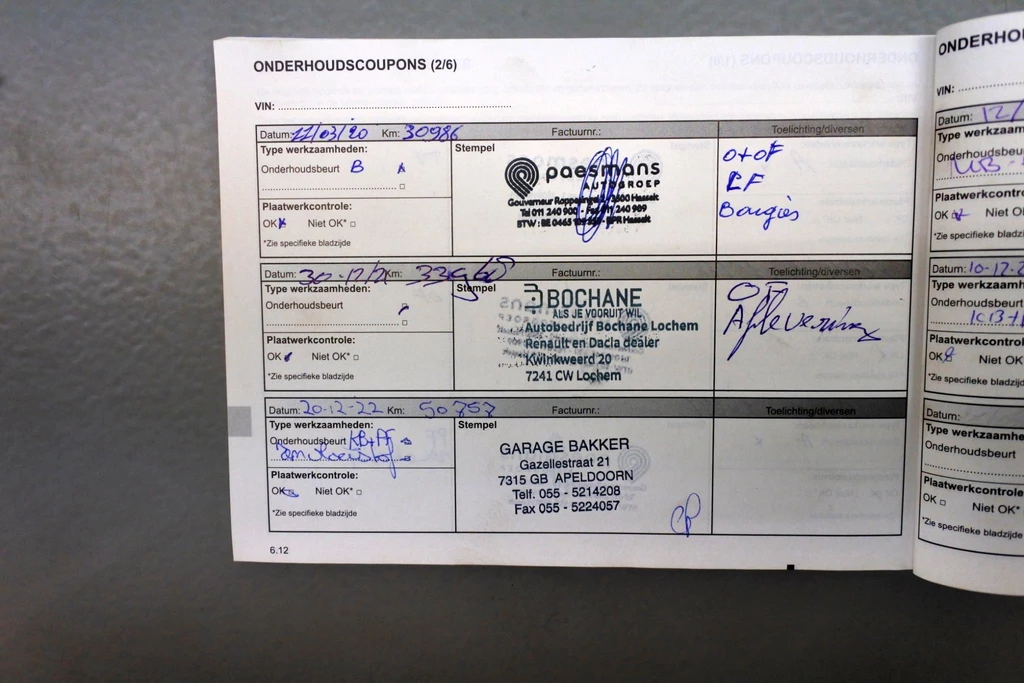 ONDERHOUDSCOUPONS (2/6)
VIN:
Datum: 11/03/20 Km: 30986 Factuurnr.: Toelichting/diversen
Type werkzaamheden:
Onderhoudsbeurt B
Plaatwerkcontrole:
OK Niet OK*
*Zie specifieke bladzijde
Stempel
paesmans
AUTOGROEP
Gouverneur 3500 Hasselt
Tel 011 240 900 - Fax 011 240 909
BTW : BE 0465 RPR Hasselt
O+OF
LF
Bougies
Datum: 30-12/21 Km: Factuurnr.: Toelichting/diversen
Type werkzaamheden:
Onderhoudsbeurt
Plaatwerkcontrole:
OK Niet OK*
*Zie specifieke bladzijde
Stempel
BOCHANE
ALS JE VOORUIT WIL
Autobedrijf Bochane Lochem
Renault en Dacia dealer
Kwinkweerd 20
7241 CW Lochem
OF
Aflevering
Datum: 20-12-22 Km: 50757 Factuurnr.: Toelichting/diversen
Type werkzaamheden:
Onderhoudsbeurt KB+PF
Plaatwerkcontrole:
OK Niet OK*
*Zie specifieke bladzijde
Stempel
GARAGE BAKKER
Gazellestraat 21
7315 GB APELDOORN
Telf. 055 - 5214208
Fax 055 - 5224057
6.12
ONDERHOU
VIN:
Datum: 12/
Type werkzaam
Onderhoudsbeu
Plaatwerkcontrole
OK Niet OK
*Zie specifieke bladz
Datum: 10-12-2
Type werkzaam
Onderhoudsbeurt
Plaatwerkcontrole
OK Niet OK
*Zie specifieke bladzij
Datum:
Type werkzaamhe
Onderhoudsbeurt
Plaatwerkcontrole
OK Niet OK*
*Zie specifieke bladzijde